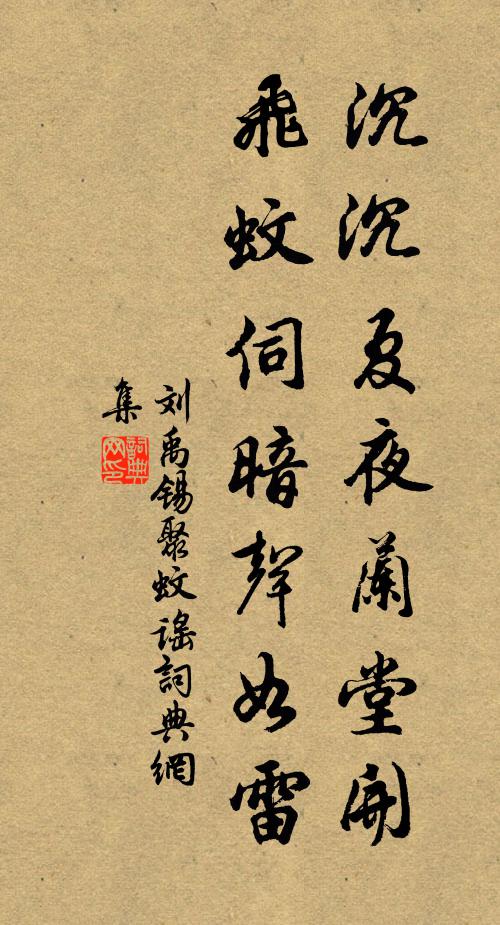 沉沉夏夜蘭堂開
飛蚊伺暗聲如雷
刘禹锡聚蚊謠詞典網
集
詞典
网印